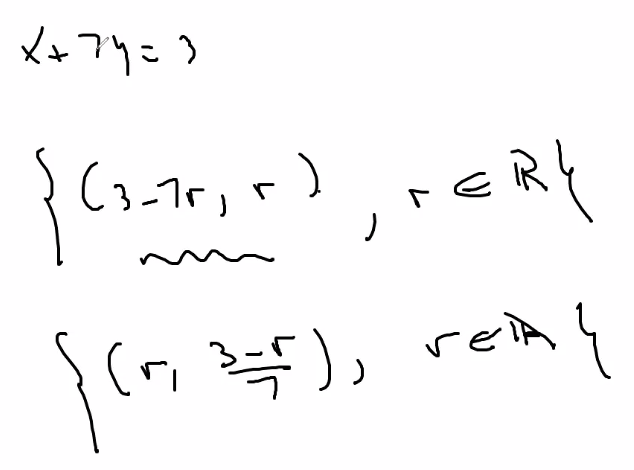 x+7y=3
{(3-7r, r), r∈ℝ}
{(r, \frac{3-r}{7}), r∈ℝ}